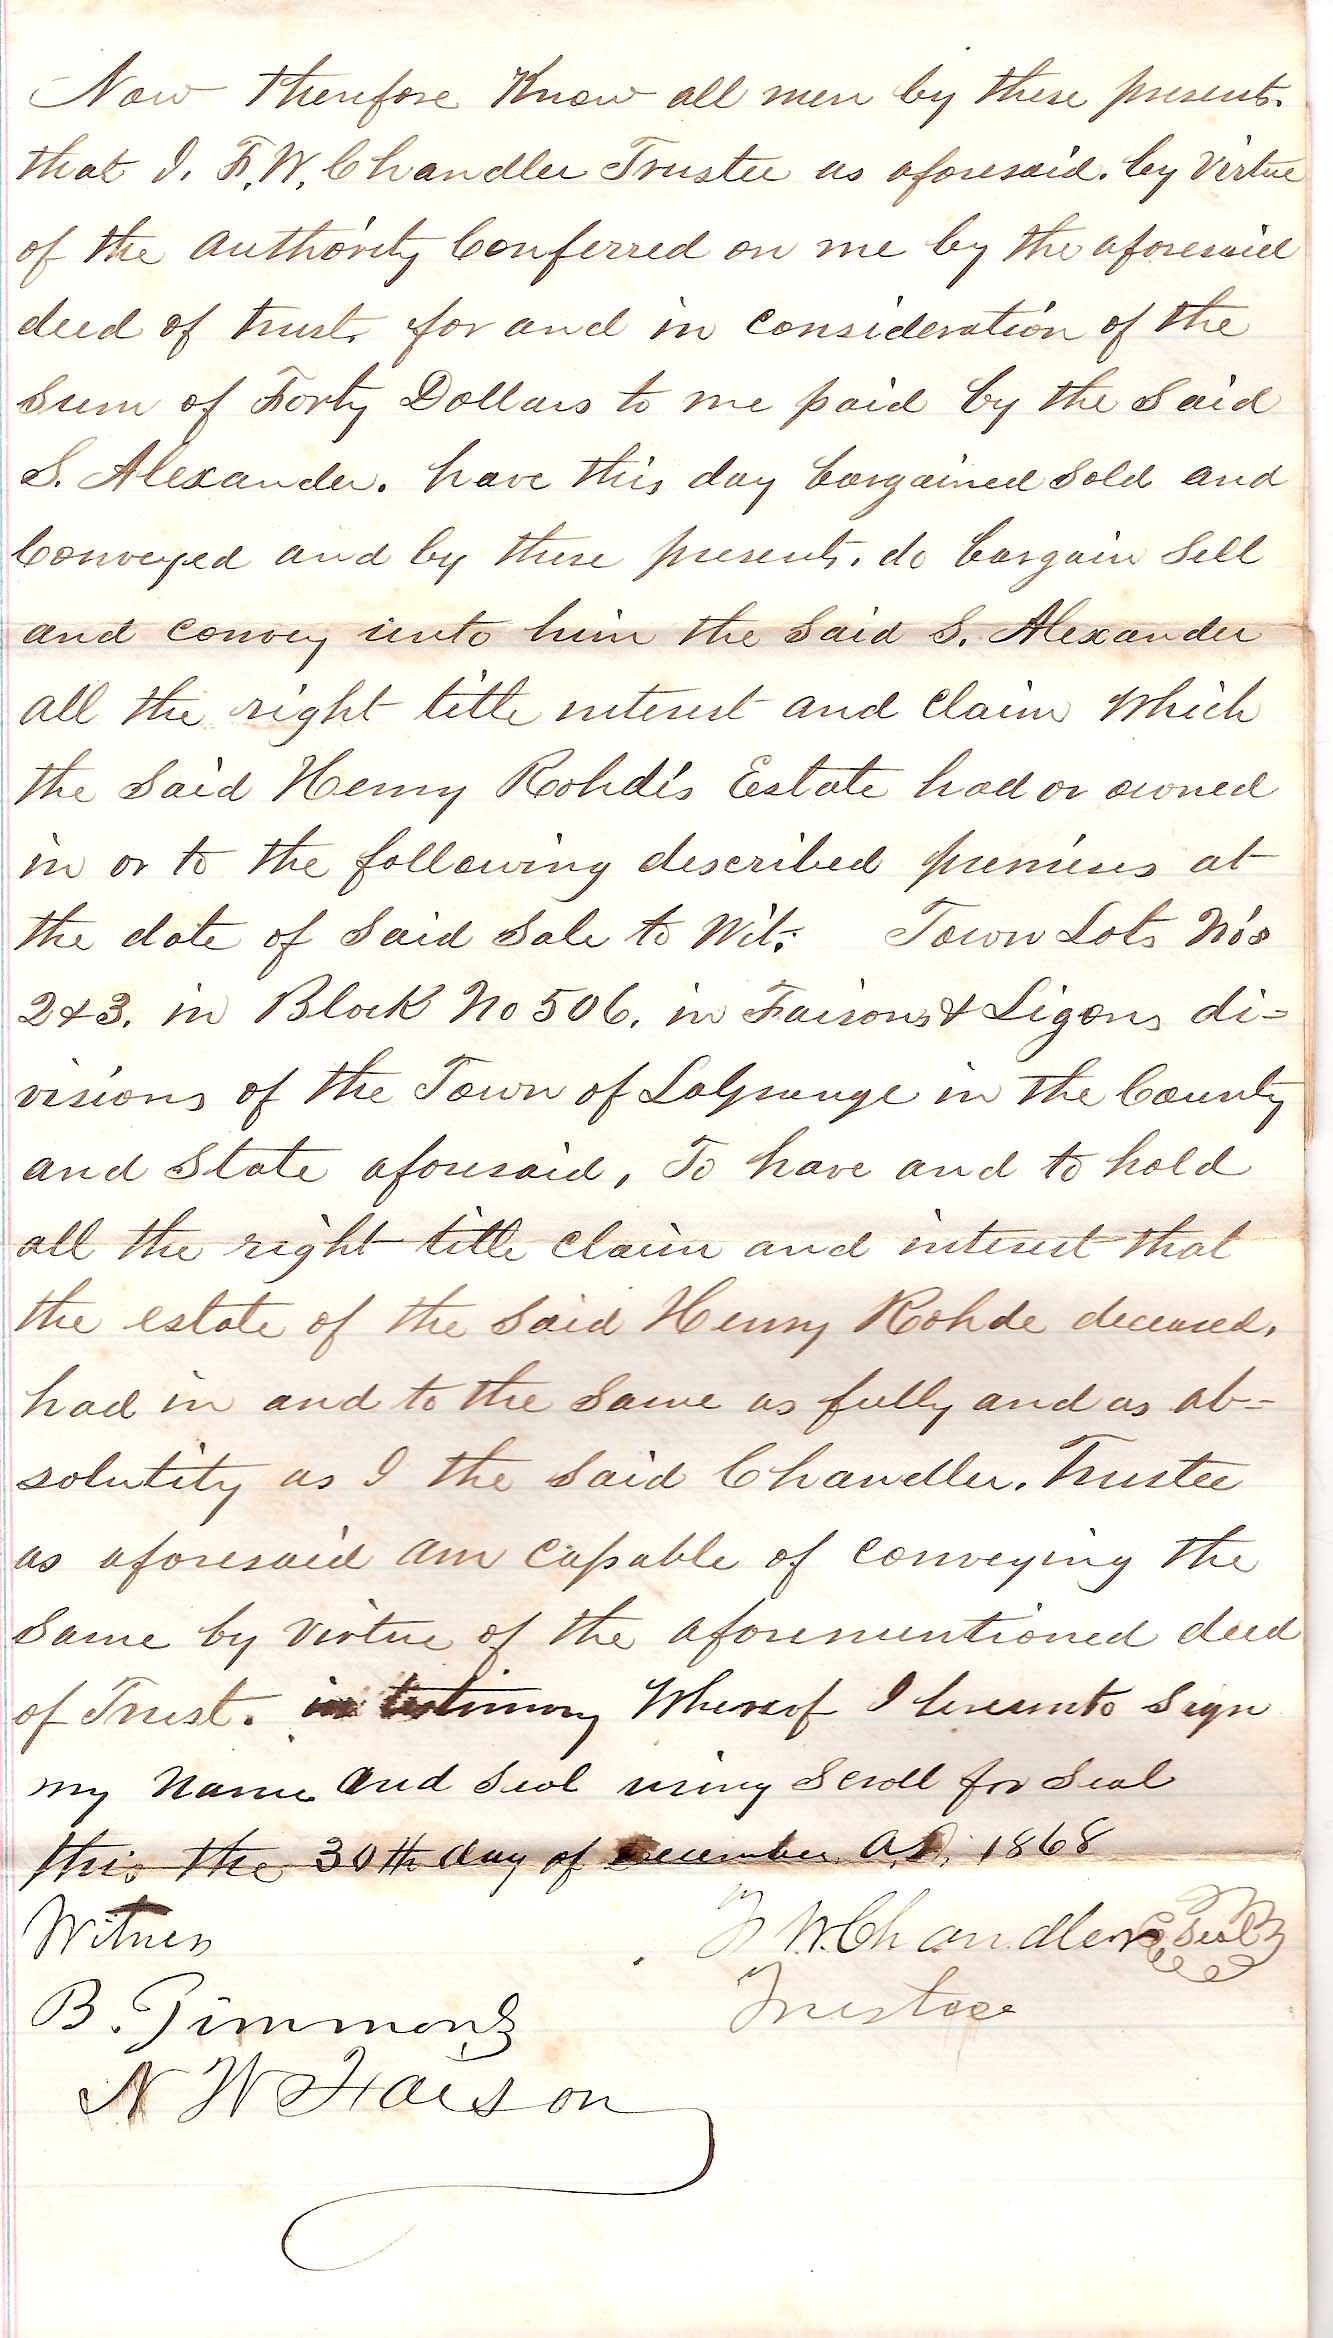 Now therefore Know all men by these presents.
that I. F. W. Chandler Trustee as aforesaid. by Virtue
of the authority Conferred on me by the aforesaid
deed of trust, for and in consideration of the
Sum of Forty Dollars to me paid by the Said
S. Alexander. have this day bargained Sold and
Conveyed and by these presents. do bargain Sell
and convey unto him the Said S. Alexander
all the right title interest and claim Which
the Said Henry Rohde's Estate had or owned
in or to the following described premises at
the date of Said Sale to Wit: Town Lots No's
2 & 3. in Block No 506. in Faisons & Ligons di=
visions of the Town of LaGrange in the County
and State aforesaid, To have and to hold
all the right title claim and interest that
the estate of the Said Henry Rohde deceased.
had in and to the Same as fully and as ab=
solutity as I the Said Chandler. Trustee
as aforesaid am capable of conveying the
Same by virtue of the aforementioned deed
of Trust. in testimony Whereof I hereunto Sign
my Name and Seal using Scroll for Seal
this the 30th day of December A.D. 1868
Witness F W. Chandler Seal
B. Timmons Trustee
N W Faison